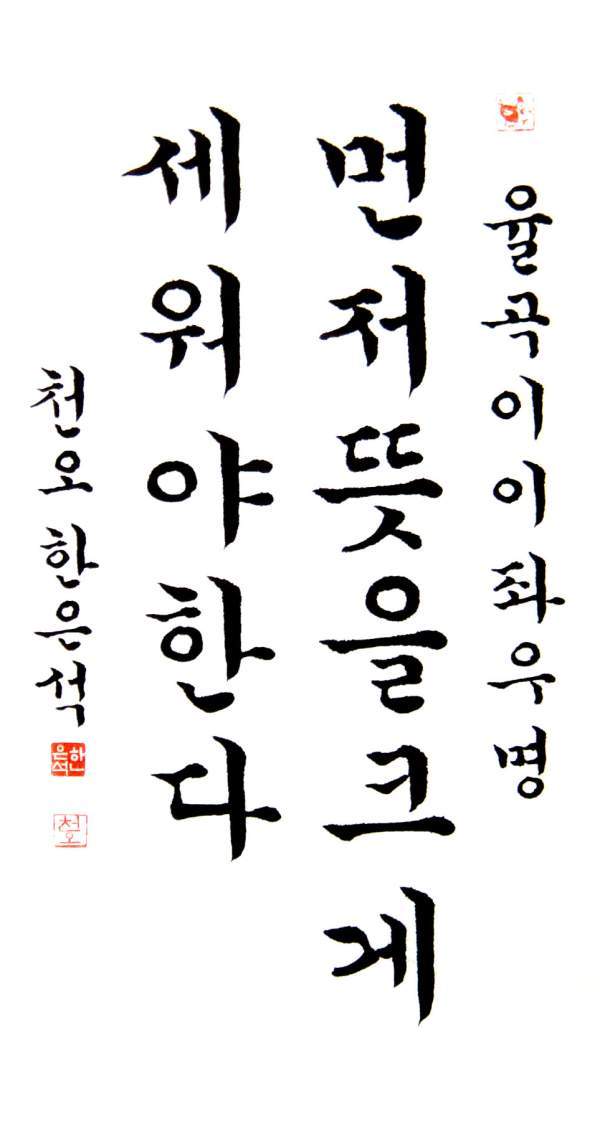 율곡이이좌우명
먼저뜻을크게
세워야한다
천오한은석
한은석
천오